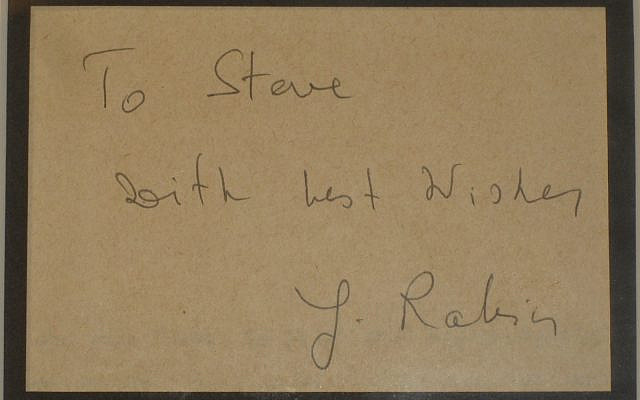 To Steve
With best Wishes
Y. Rabin